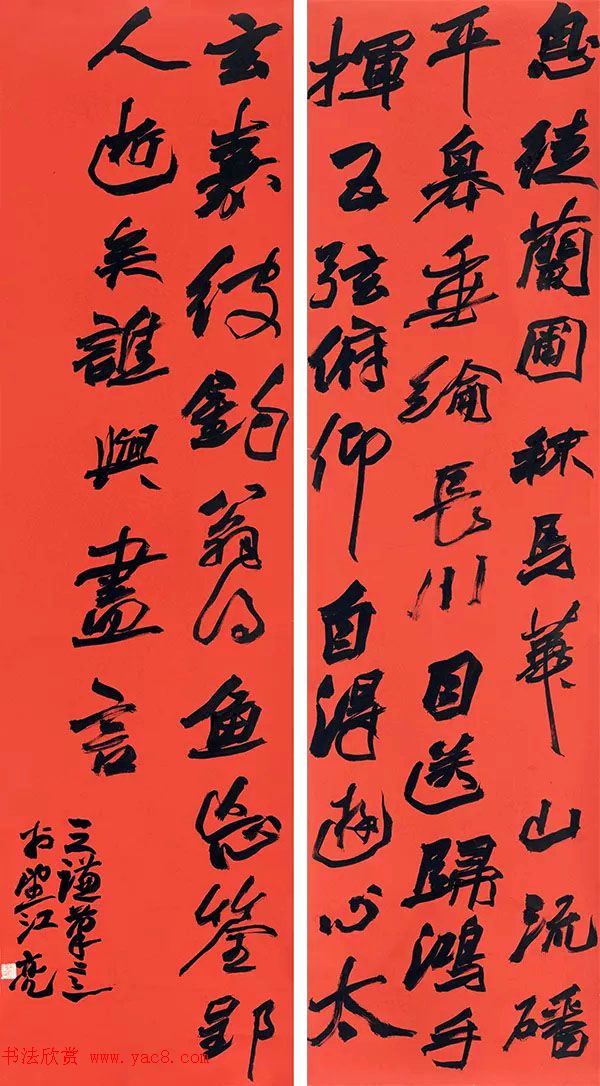 息徒蘭圃秣馬華山流磻
平皋垂綸長川目送歸鴻手
揮五弦俯仰自得遊心太
玄嘉彼釣翁得魚忘筌郢
人逝矣誰與盡言
於望江
书法欣赏 www.yac8.com